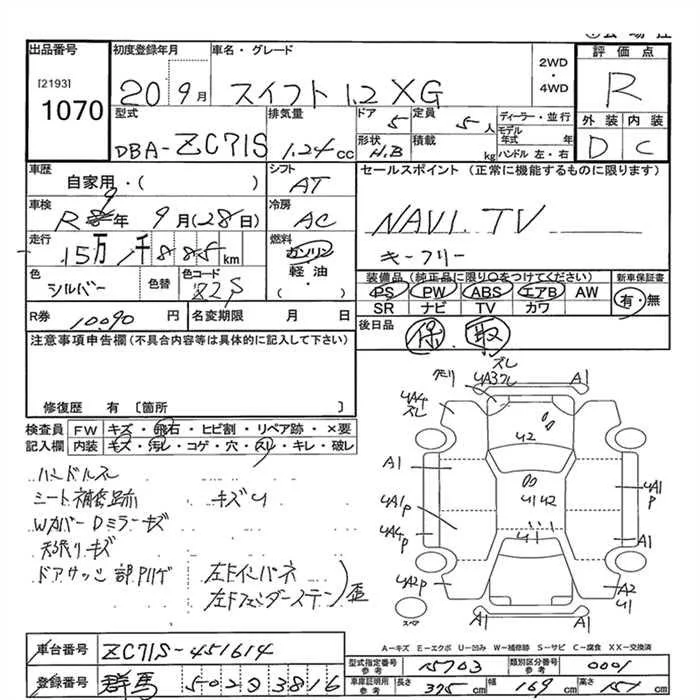 出品番号
[2193]
1070
初度登録年月
20 9月
車名・グレード
スイフト 1.2 XG
2WD
・
4WD
評価点
R
型式
DBA-ZC71S
排気量
1.24 cc
ドア
5
定員
5 人
ディーラー・並行
モデル年式 年
ハンドル 左・右
形状
H.B
積載
kg
外装 内装
D C
車歴
自家用・( )
シフト
AT
セールスポイント (正常に機能するものに限ります)
NAVI. TV
キーフリー
車検
R 9年 9月(28日)
冷房
AC
走行
15万 1千 885 km
燃料
ガソリン
軽・油
( )
色
シルバー
色替
色コード
Z2S
装備品 (純正品に限り○をつけてください)
PS PW ABS エアB AW
SR ナビ TV カワ
新車保証書
有・無
R券
10090 円
名変期限 月 日
後日品
保 取
注意事項申告欄(不具合内容等は具体的に記入して下さい)
修復歴 有 [箇所 ]
検査員
記入欄
FW キズ・飛石・ヒビ割・リペア跡・×要
内装 キズ・汚レ・コゲ・穴・スレ・キレ・破レ
ハンドルスレ
シート補修跡 キズU
WカバーDミラーキズ
天張りキズ
ドアサッシ部
左Fインパネ
左Fフェンダーステン
歪
クモリ
ズレ
UA3
UA4
ズレ
A1
A1
U2
A1
UA1
P
UA4
P
UA2P
U1 U2
U1
UA1
P
A1
A2
U1
スペア
A-キズ E-エクボ U-凹み W-補修跡 S-サビ C-腐食 XX-交換済
車台番号
ZC71S-451614
登録番号
群馬 502 ヲ 3816
型式指定番号
参考
15703
類別区分番号
参考
0001
車庫証明用
参考
長さ 375 cm
幅 169 cm
高さ 151 cm